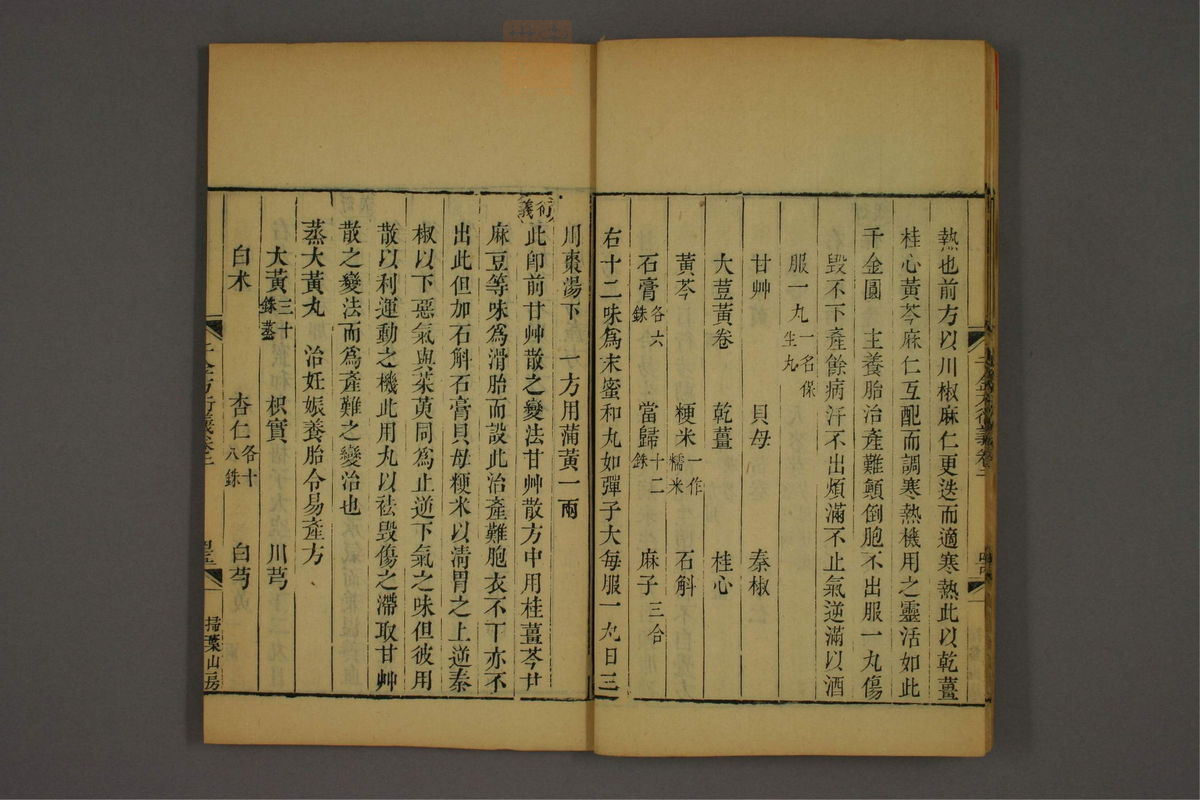 熱也前方以川椒麻仁更迭而適寒熱此以乾薑
桂心黃芩麻仁互配而調寒熱機用之靈活如此
千金圓 主養胎治產難顛倒胞不出服一丸傷
毀不下產餘病汗不出煩滿不止氣逆滿以酒
服一丸一名保生丸
甘艸 貝母 秦椒
大荳黃卷 乾薑 桂心
黃芩 粳米一作糯米 石斛
石膏各六銖 當歸十二銖 麻子三合
右十二味為末蜜和丸如彈子大每服一丸日三
川棗湯下 一方用蒲黃一兩
衍義
此即前甘艸散之變法甘艸散方中用桂薑芩甘
麻豆等味為滑胎而設此治產難胞衣不下亦不
出此但加石斛石膏貝母粳米以清胃之上逆秦
椒以下惡氣與茱萸同為止逆下氣之味但彼用
散以利運動之機此用丸以祛毀傷之滯取甘艸
散之變法而為產難之變治也
蒸大黃丸 治妊娠養胎令易產方
大黃三十銖蒸 枳實 川芎
白朮 杏仁各十八銖 白芍
千金方衍義卷二
掃葉山房